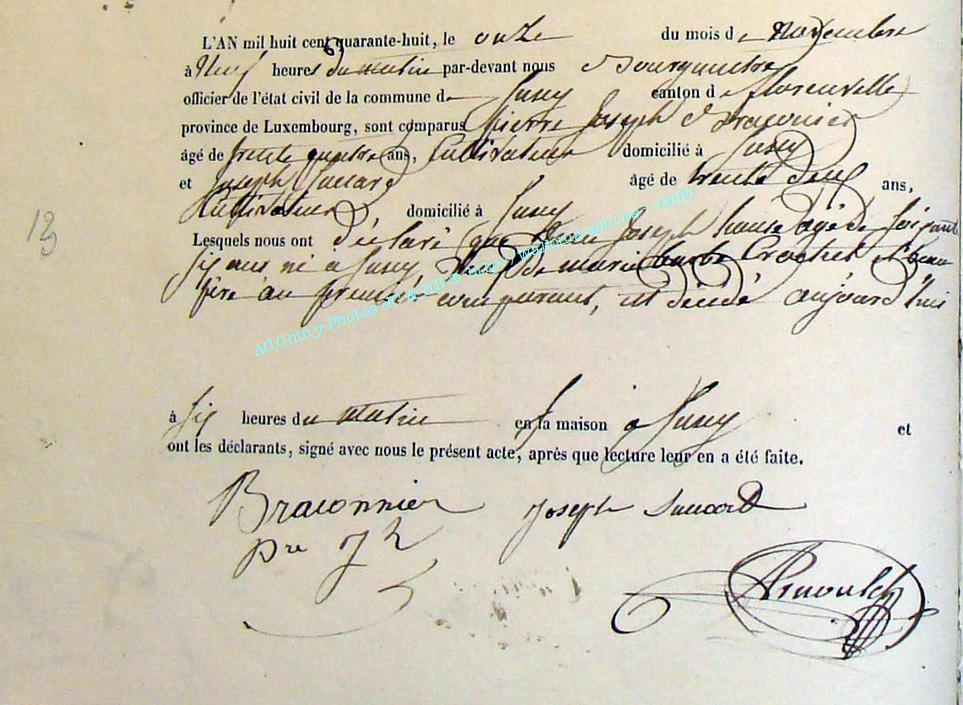 L'AN mil huit cent quarante-huit, le onze du mois de Novembre
à Neuf heures du matin par-devant nous Bourgmestre
officier de l'état civil de la commune de Suxy canton de florenville
province de Luxembourg, sont comparus Pierre Joseph Braconnier
âgé de trente quatre ans, Cultivateur domicilié à Suxy
et Joseph Succard âgé de trente deux ans,
Cultivateur, domicilié à Suxy
13
Lesquels nous ont déclaré que Jean Joseph hause agé de soixante
six ans né à Suxy veuf de marie barbe Crochet et beau
père au premier comparant, est décédé aujourd'hui
AC.Chiny-Photos
à six heures du matin en sa maison à Suxy et
ont les déclarants, signé avec nous le présent acte, après que lecture leur en a été faite.
Braconnier Joseph Succard
pre Jh
Arnould